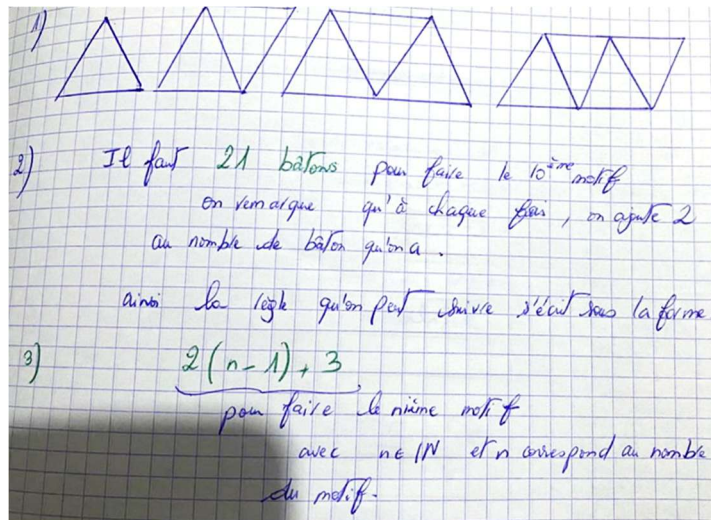 1)
2) Il faut 21 bâtons pour faire le 10ème motif
on remarque qu'à chaque fois, on ajoute 2
au nombre de bâton qu'on a.
ainsi la règle qu'on peut suivre s'écrit sous la forme
3) 2(n-1)+3
pour faire le nième motif
avec n∈IN et n correspond au nombre
du motif.